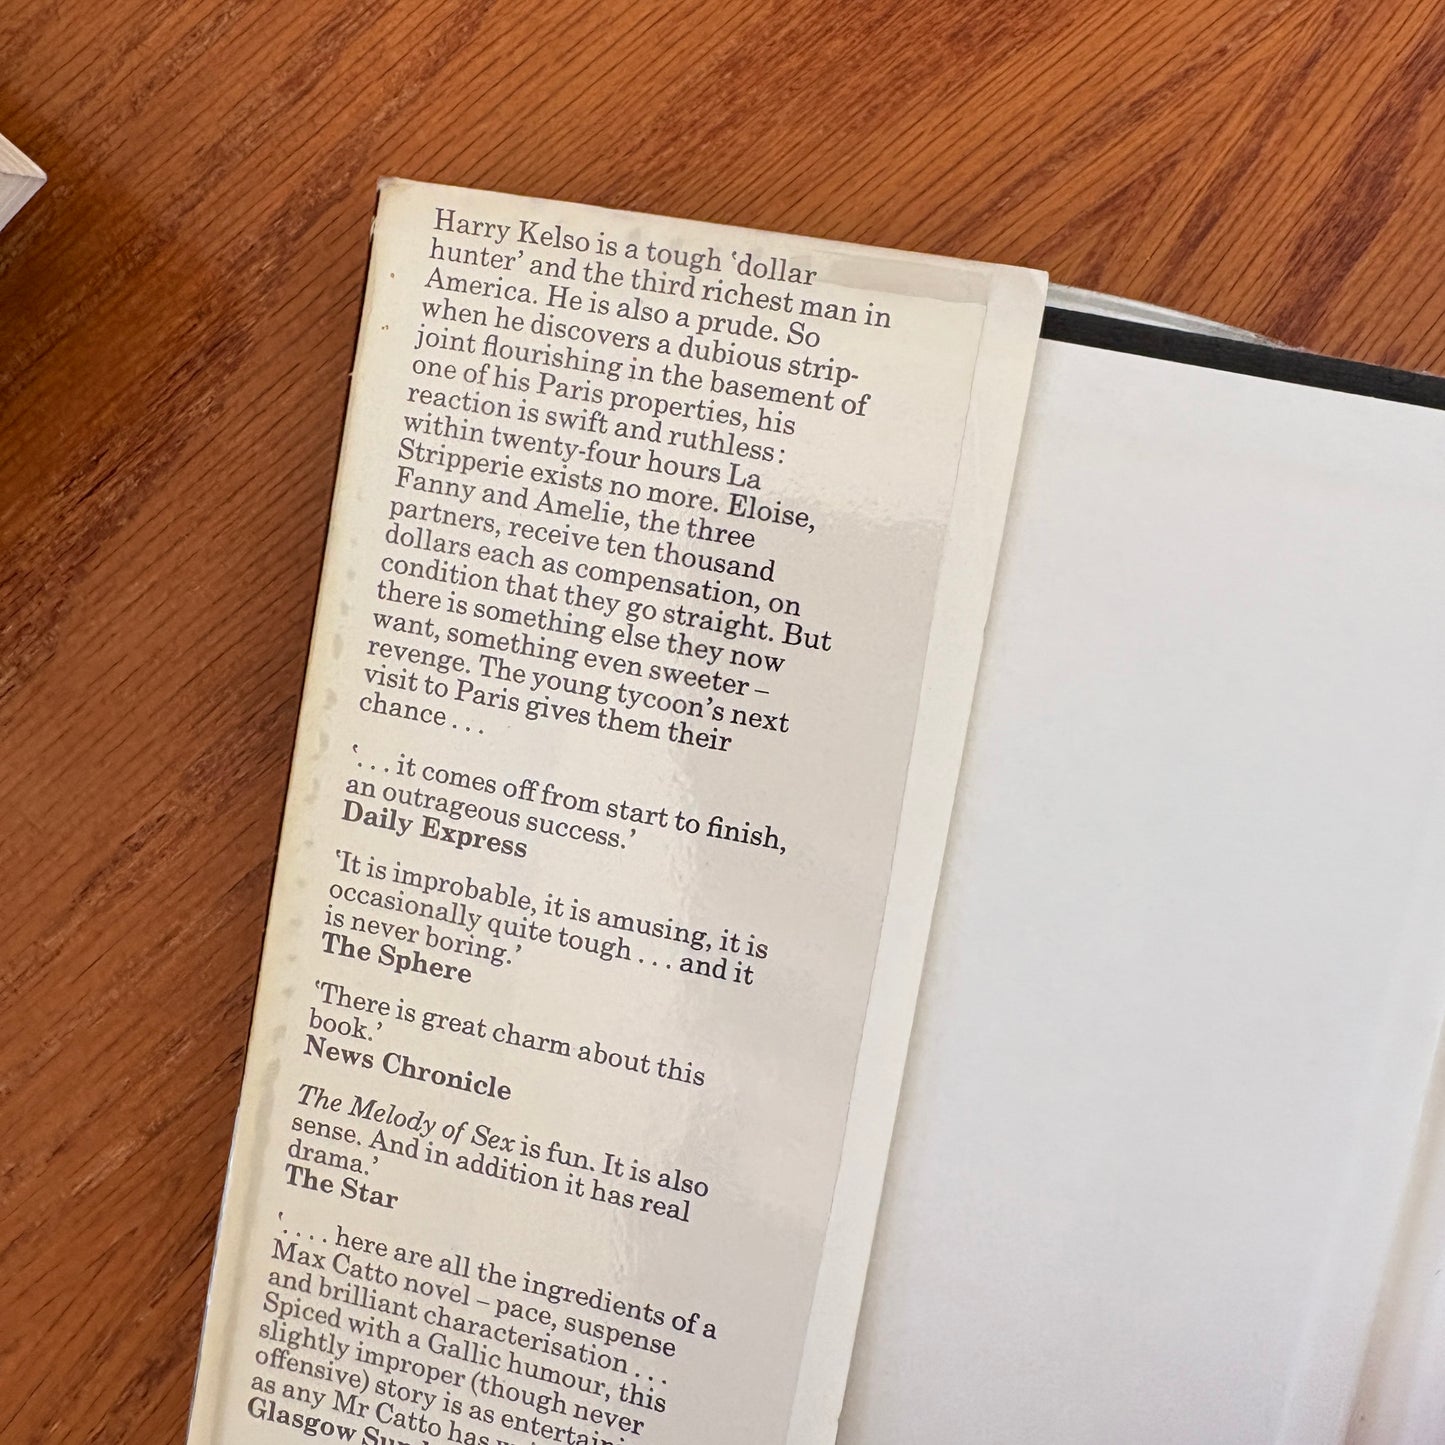 Harry Kelso is a tough ‘dollar
hunter’ and the third richest man in
America. He is also a prude. So
when he discovers a dubious strip-
joint flourishing in the basement of
one of his Paris properties, his
reaction is swift and ruthless:
within twenty-four hours La
Stripperie exists no more. Eloise,
Fanny and Amelie, the three
partners, receive ten thousand
dollars each as compensation, on
condition that they go straight. But
there is something else they now
want, something even sweeter –
revenge. The young tycoon’s next
visit to Paris gives them their
chance . . .
‘. . . it comes off from start to finish,
an outrageous success.’
Daily Express
‘It is improbable, it is amusing, it is
occasionally quite tough . . . and it
is never boring.’
The Sphere
‘There is great charm about this
book.’
News Chronicle
The Melody of Sex is fun. It is also
sense. And in addition it has real
drama.’
The Star
‘. . . . here are all the ingredients of a
Max Catto novel – pace, suspense
and brilliant characterisation . . .
Spiced with a Gallic humour, this
slightly improper (though never
offensive) story is as
as any Mr Catto has
Glasgow